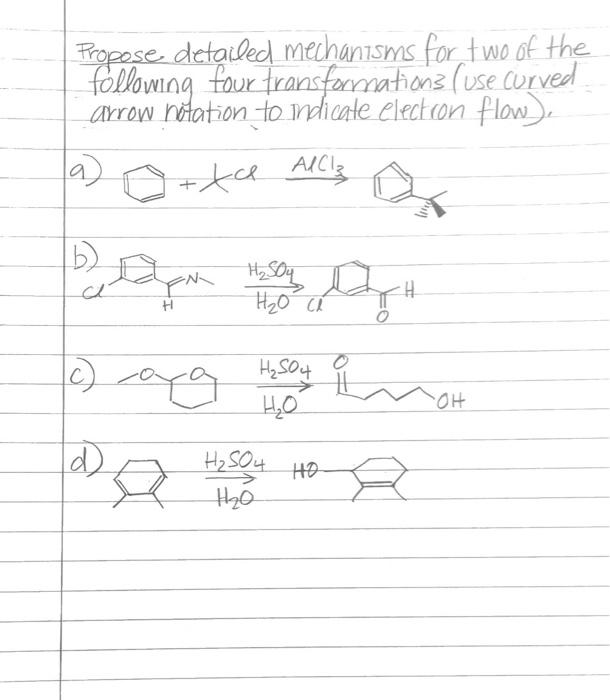 Propose detailed mechanisms for two of the
following four transformations (use curved
arrow notation to indicate electron flow).
a) + Cl AlCl3
b) Cl N H H2SO4 H2O Cl H O
c) O O H2SO4 H2O O OH
d) H2SO4 H2O HO